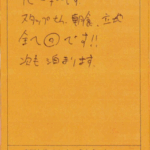 スタッフさん、朝食、立地
全て◎です!!
次も泊まります。